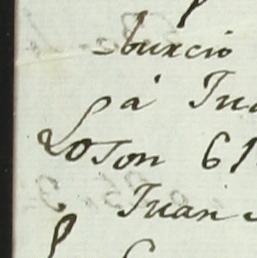 burcio
á Jua
Loson 61
Juan